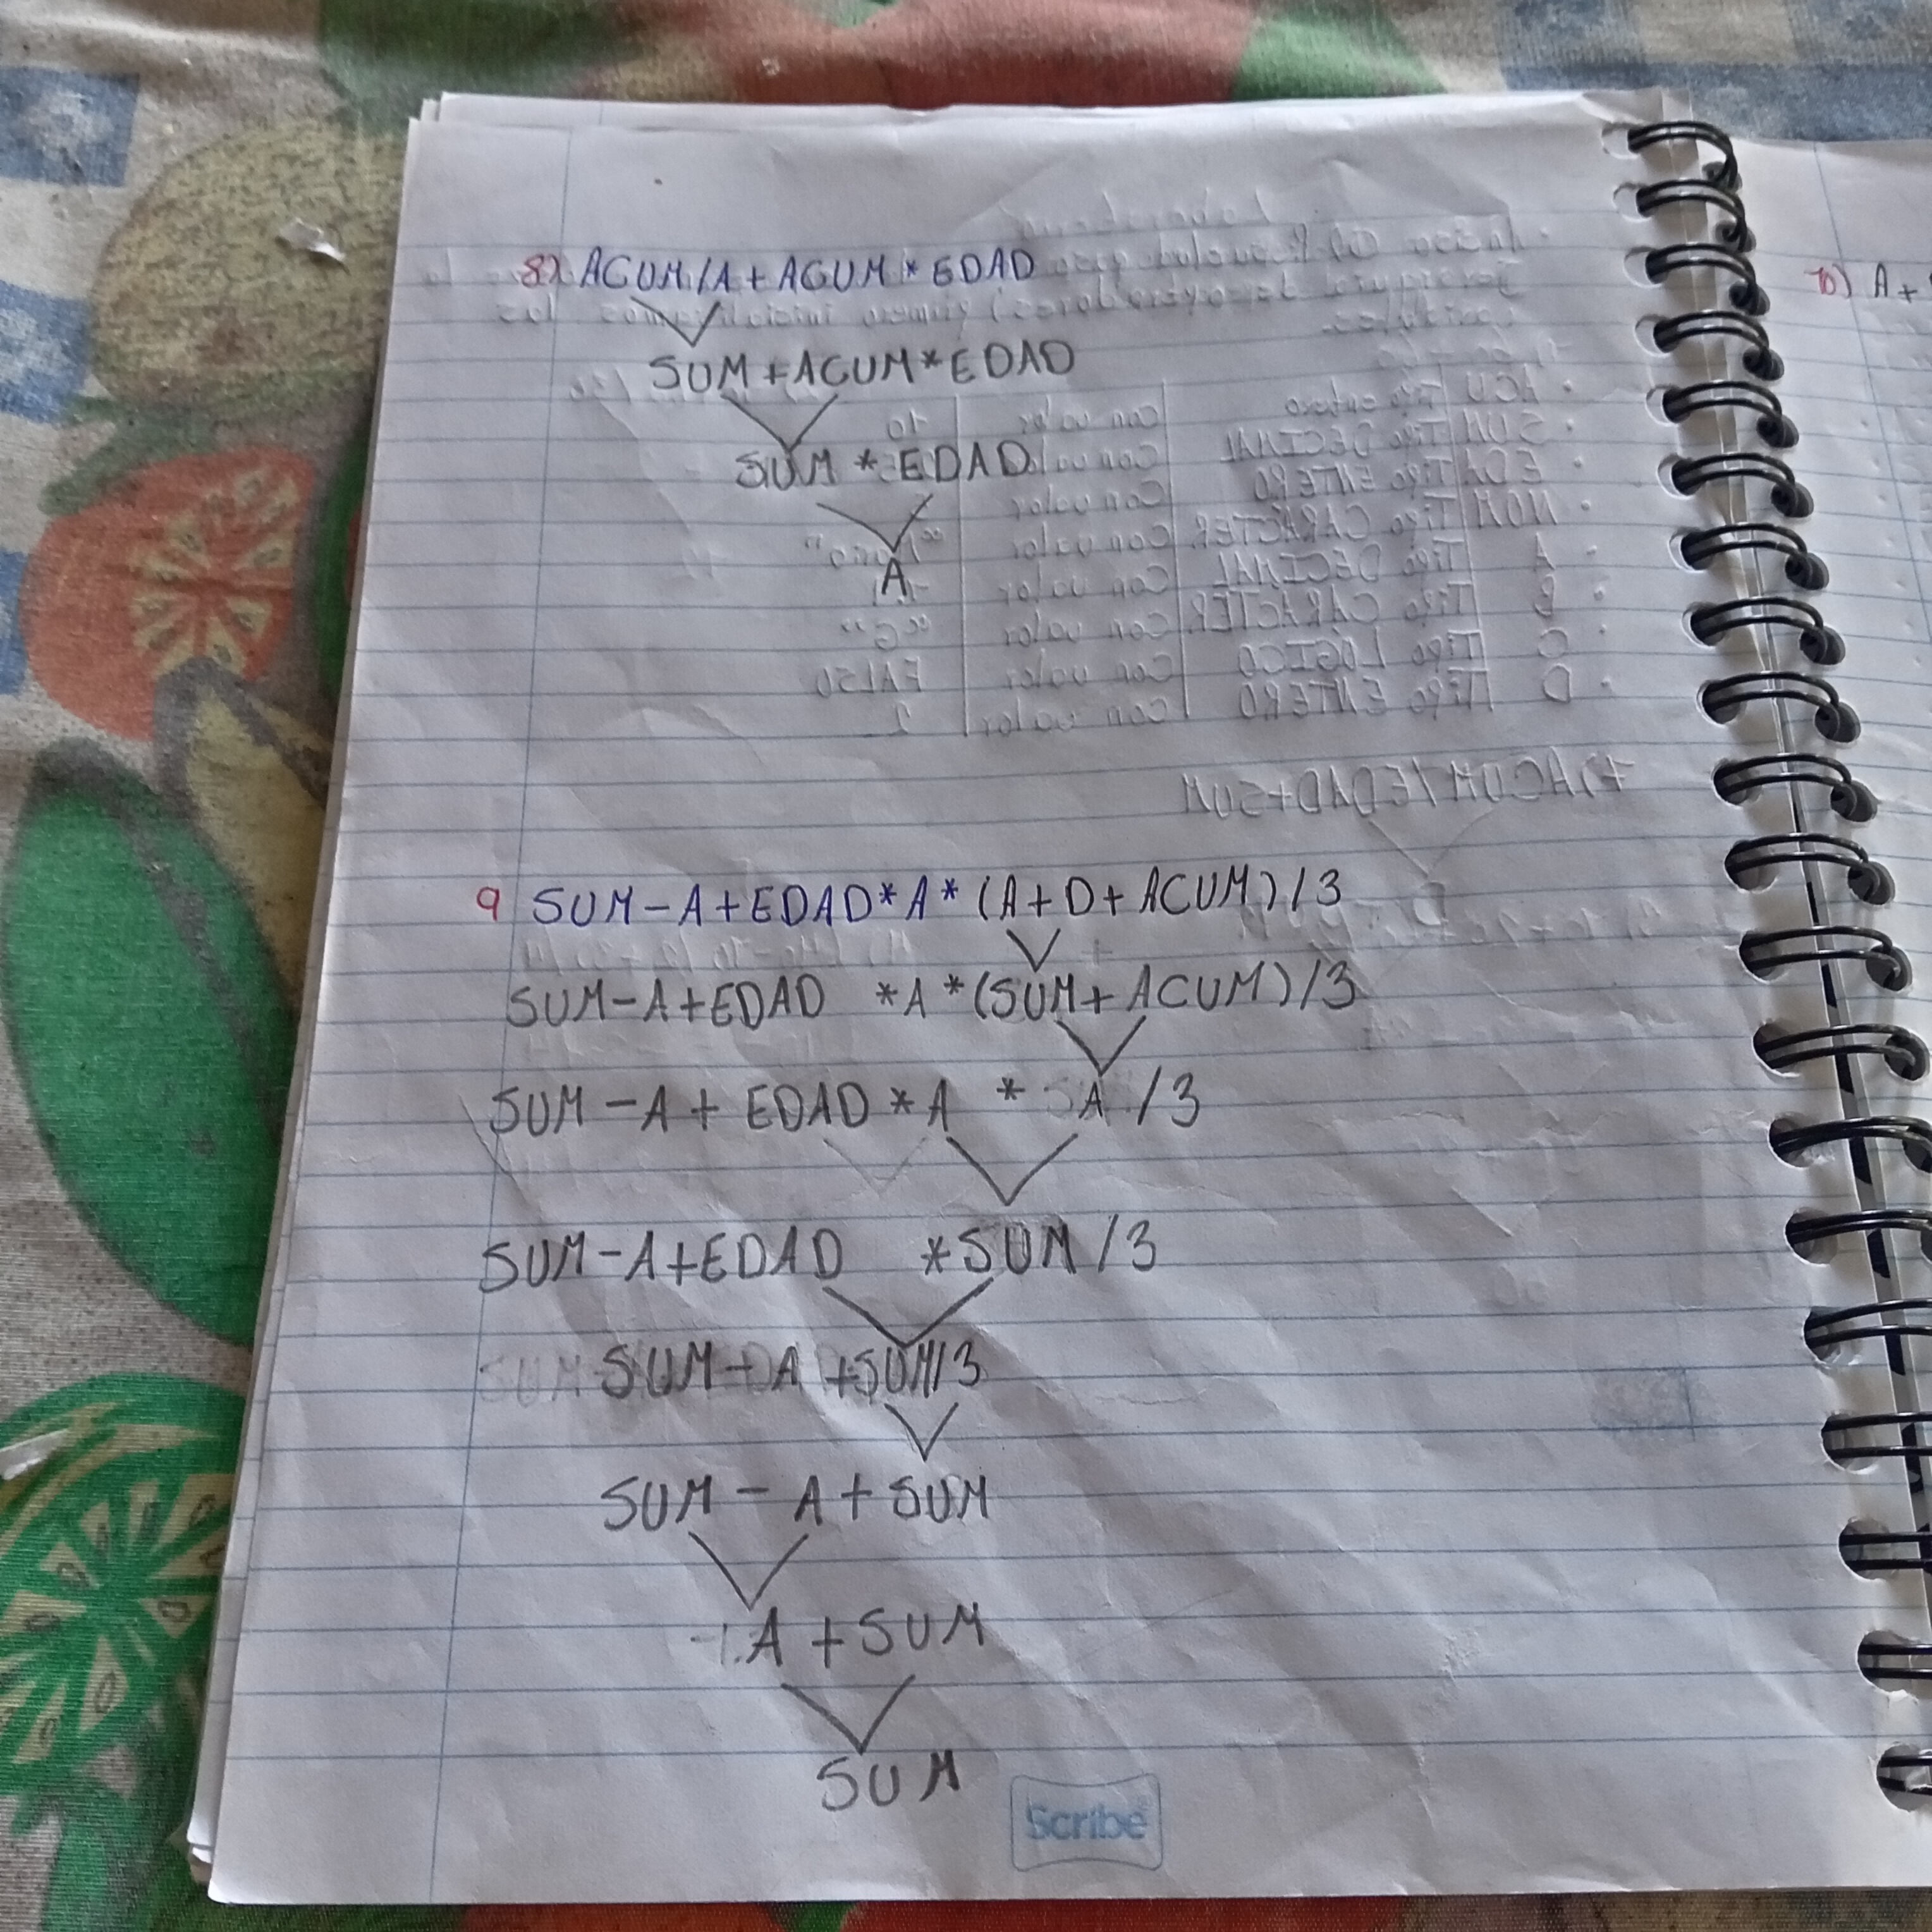 8) ACUM/A + ACUM * EDAD
SUM + ACUM * EDAD
SUM * EDAD
A
9 SUM - A + EDAD * A * (A + D + ACUM) / 3
SUM - A + EDAD * A * (SUM + ACUM) / 3
SUM - A + EDAD * A * A / 3
SUM - A + EDAD * SUM / 3
SUM - A + SUM / 3
SUM - A + SUM
A + SUM
SUM
Scribe
10) A +